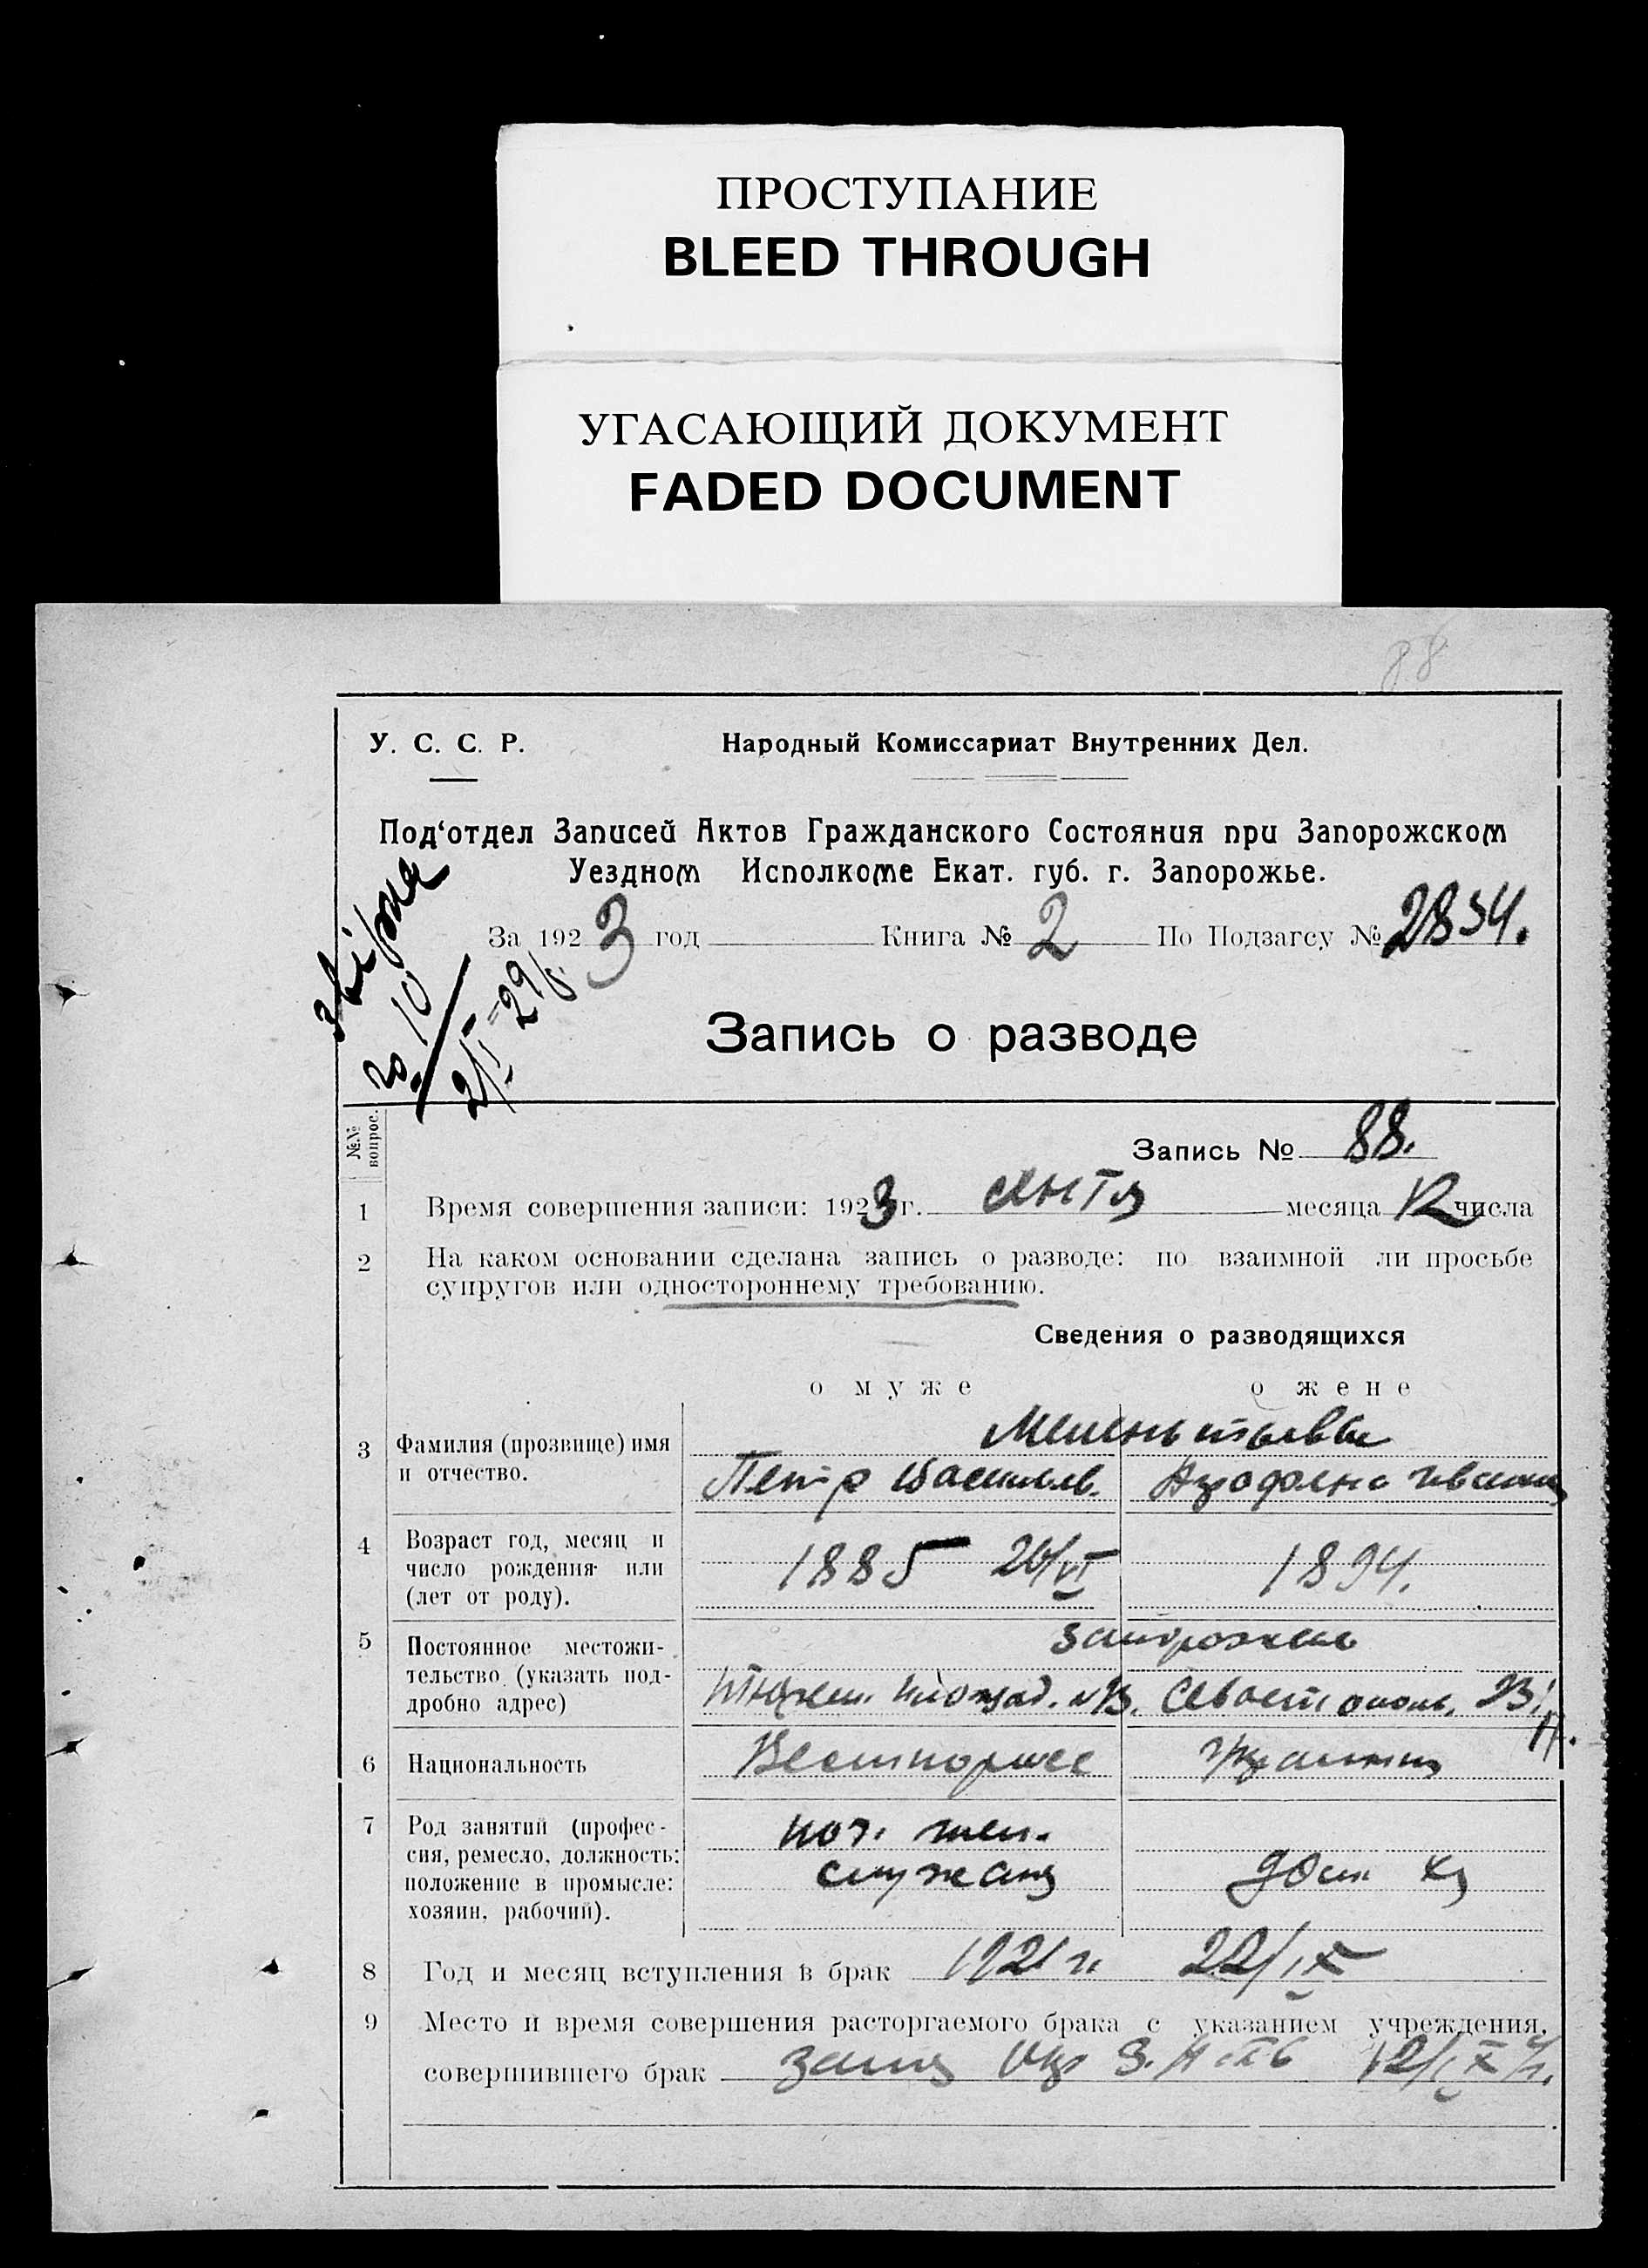 ПРОСТУПАНИЕ
BLEED THROUGH
УГАСАЮЩИЙ ДОКУМЕНТ
FADED DOCUMENT
88
У. С. С. Р.
Народный Комиссариат Внутренних Дел.
Под‘отдел Записей Актов Гражданского Состояния при Запорожском
Уездном Исполкоме Екат. губ. г. Запорожье.
За 1923 год Книга № 2 По Подзагсу № 2834.
Запись о разводе
№№ вопрос.
Запись № 88.
1 Время совершения записи: 1923 г. месяца 12 числа
2 На каком основании сделана запись о разводе: по взаимной ли просьбе
супругов или одностороннему требованию.
Сведения о разводящихся
о муже о жене
3 Фамилия (прозвище) имя
и отчество.
Петр Васильев.
4 Возраст год, месяц и
число рождения или
(лет от роду).
1885 26/VI 1894.
5 Постоянное местожи-
тельство (указать под-
дробно адрес)
Запорожье
площад. Севастополь. 23
6 Национальность
7 Род занятий (профес-
сия, ремесло, должность:
положение в промысле:
хозяин, рабочий).
служащ
дом хоз
8 Год и месяц вступления в брак 1921 г. 22/IX
9 Место и время совершения расторгаемого брака с указанием учреждения,
совершившего брак